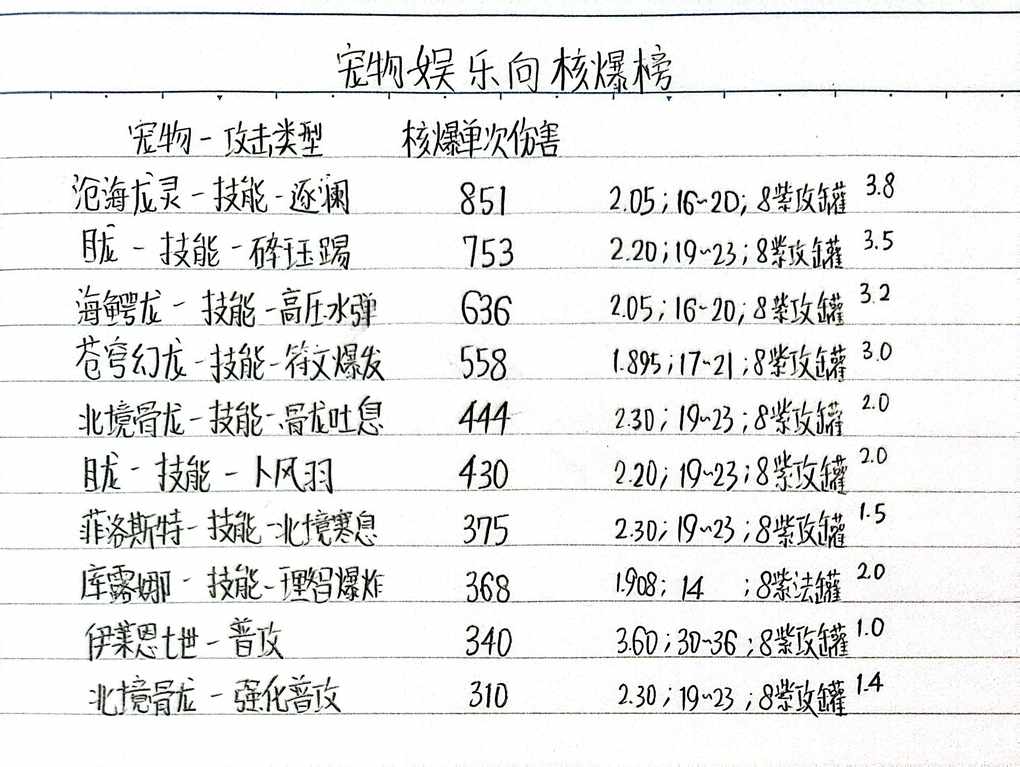 宠物娱乐向核爆榜
宠物-攻击类型 核爆单次伤害
沧海龙灵-技能-逐澜 851 2.05;16~20;8紫攻罐 3.8
目龙-技能-碎珏踢 753 2.20;19~23;8紫攻罐 3.5
海鳄龙-技能-高压水弹 636 2.05;16~20;8紫攻罐 3.2
苍穹幻龙-技能-符文爆发 558 1.895;17~21;8紫攻罐 3.0
北境骨龙-技能-骨龙吐息 444 2.30;19~23;8紫攻罐 2.0
目龙-技能-卜风羽 430 2.20;19~23;8紫攻罐 2.0
菲洛斯特-技能-北境寒息 375 2.30;19~23;8紫攻罐 1.5
库露娜-技能-理智爆炸 368 1.908;14;8紫法罐 2.0
伊莱恩七世-普攻 340 3.60;30~36;8紫攻罐 1.0
北境骨龙-强化普攻 310 2.30;19~23;8紫攻罐 1.4